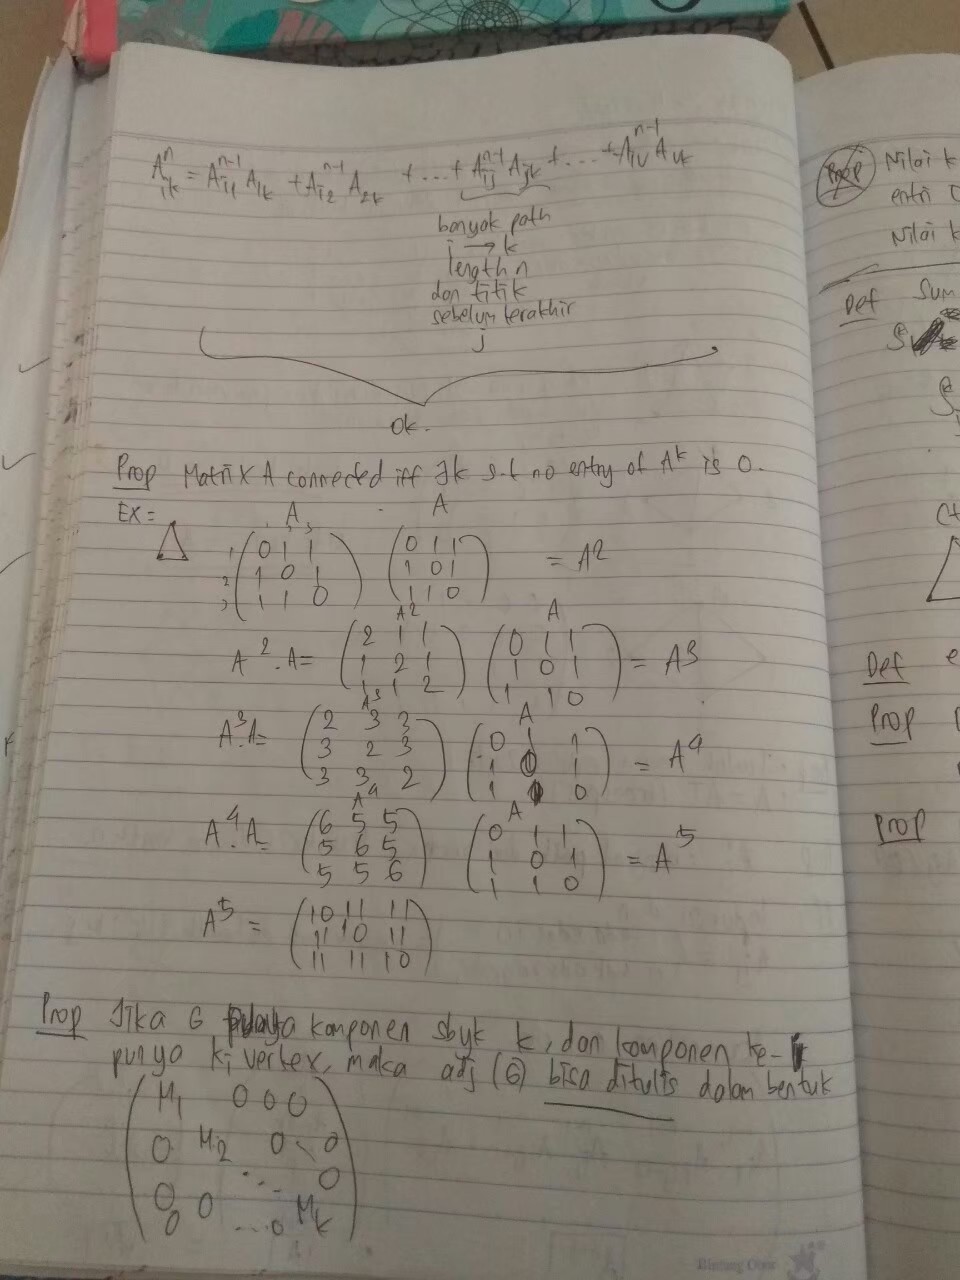 A^n_{ik} = A^{n-1}_{i1} A_{1k} + A^{n-1}_{i2} A_{2k} + ... + A^{n-1}_{ij} A_{jk} + ... + A^{n-1}_{iv} A_{vk}
banyak path
i → k
length n
dan titik
sebelum terakhir
j
Ok.
Prop Matrix A connected iff ∃k s.t no entry of A^k is 0.
EX =
A A
1 (0 1 1) (0 1 1)
2 (1 0 1) (1 0 1) = A^2
3 (1 1 0) (1 1 0)
A^2 A
(2 1 1) (0 1 1)
A^2 . A = (1 2 1) (1 0 1) = A^3
(1 1 2) (1 1 0)
A^3 A
(2 3 3) (0 1 1)
A^3 . A = (3 2 3) (1 0 1) = A^4
(3 3 2) (1 1 0)
A^4 A
(6 5 5) (0 1 1)
A^4 . A = (5 6 5) (1 0 1) = A^5
(5 5 6) (1 1 0)
(10 11 11)
A^5 = (11 10 11)
(11 11 10)
Prop Jika G punya komponen sbyk k, dan komponen ke-i
punya k_i vertex, maka adj (G) bisa ditulis dalam bentuk
(M_1 0 0 0)
(0 M_2 0 0)
(0 ... 0)
(0 0 ... 0 M_k)
Prop Nilai k
entri
Nilai k
Def Sum
Def e
Prop
Prop
Bintang Obor